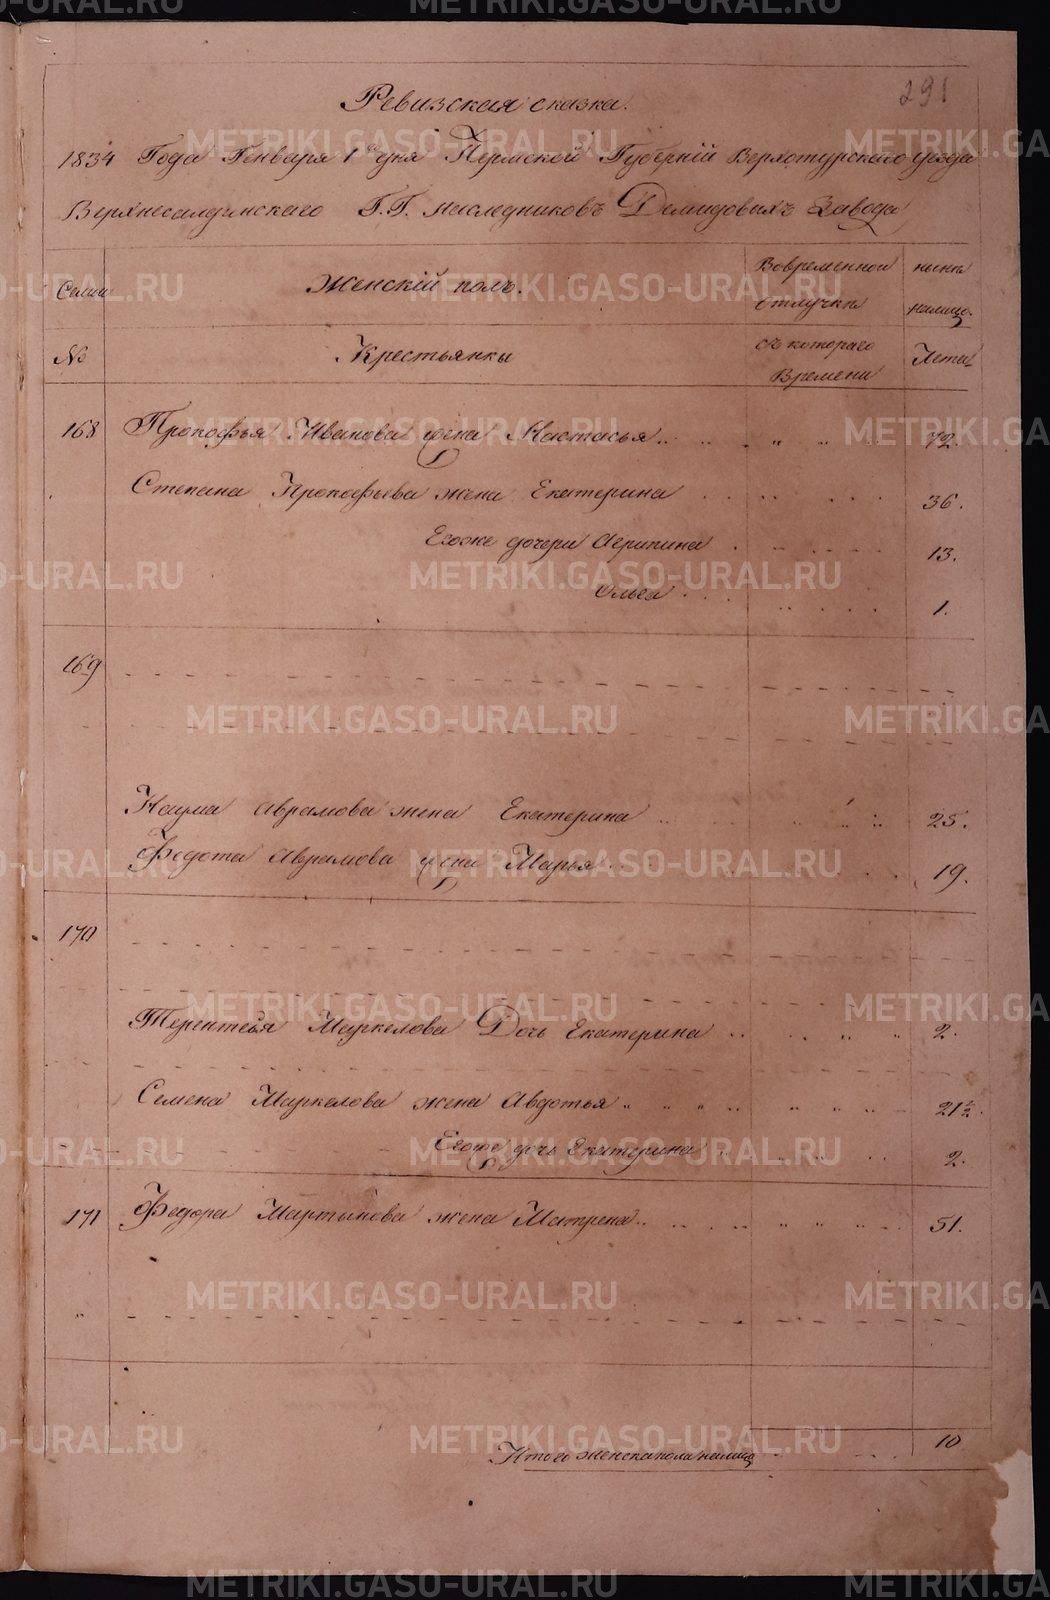 291
Ревизская сказка.
1834 Года Генваря 1го дня Пермской Губерніи Верхотурского уезда
Верхнесалдинскаго Г.Г. наследниковъ Демидовыхъ Завода
Семьи Женскій полъ. Вовременной отлучки ныне налицо.
№ Крестьянки съ котораго Времени Лета
168 Прокофья Иванова жена Настасья 72.
Степана Прокофьева жена Екатерина 36.
Егоже дочери Агрипина 13.
Ольга 1.
169
Наума Аврамова жена Екатерина 25.
Федота Аврамова жена Марья 19.
170
Терентья Маркелова Дочь Екатерина 2.
Семена Маркелова жена Авдотья 21½.
Егоже дочь Екатерина 2.
171 Федора Мартынова жена Матрена 51.
10
Итого женска пола налицо
METRIKI.GASO-URAL.RU